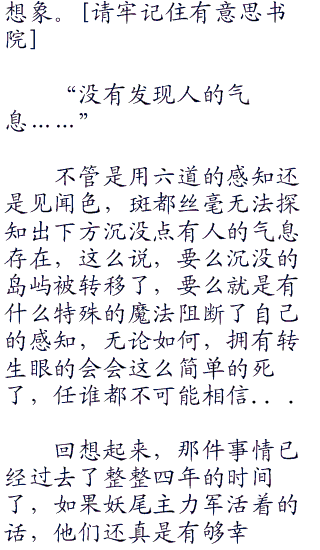 想象。[请牢记住有意思书
院]
“没有发现人的气
息……”
不管是用六道的感知还
是见闻色，斑都丝毫无法探
知出下方沉没点有人的气息
存在，这么说，要么沉没的
岛屿被转移了，要么就是有
什么特殊的魔法阻断了自己
的感知，无论如何，拥有转
生眼的会会这么简单的死
了，任谁都不可能相信...
回想起来，那件事情已
经过去了整整四年的时间
了，如果妖尾主力军活着的
话，他们还真是有够幸